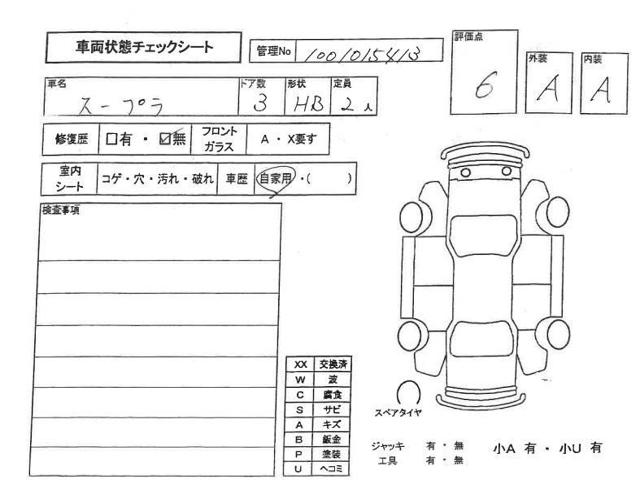 車両状態チェックシート 管理No 1001015413 評価点 6 外装 A 内装 A
車名 スープラ ドア数 3 形状 HB 定員 2人
修復歴 □有・☑無 フロントガラス A・X要す
室内シート コゲ・穴・汚れ・破れ 車歴 自家用・( )
検査事項
XX 交換済
W 波
C 腐食
S サビ
A キズ
B 鈑金
P 塗装
U ヘコミ
スペアタイヤ
ジャッキ 有・無
工具 有・無
小A 有・小U 有